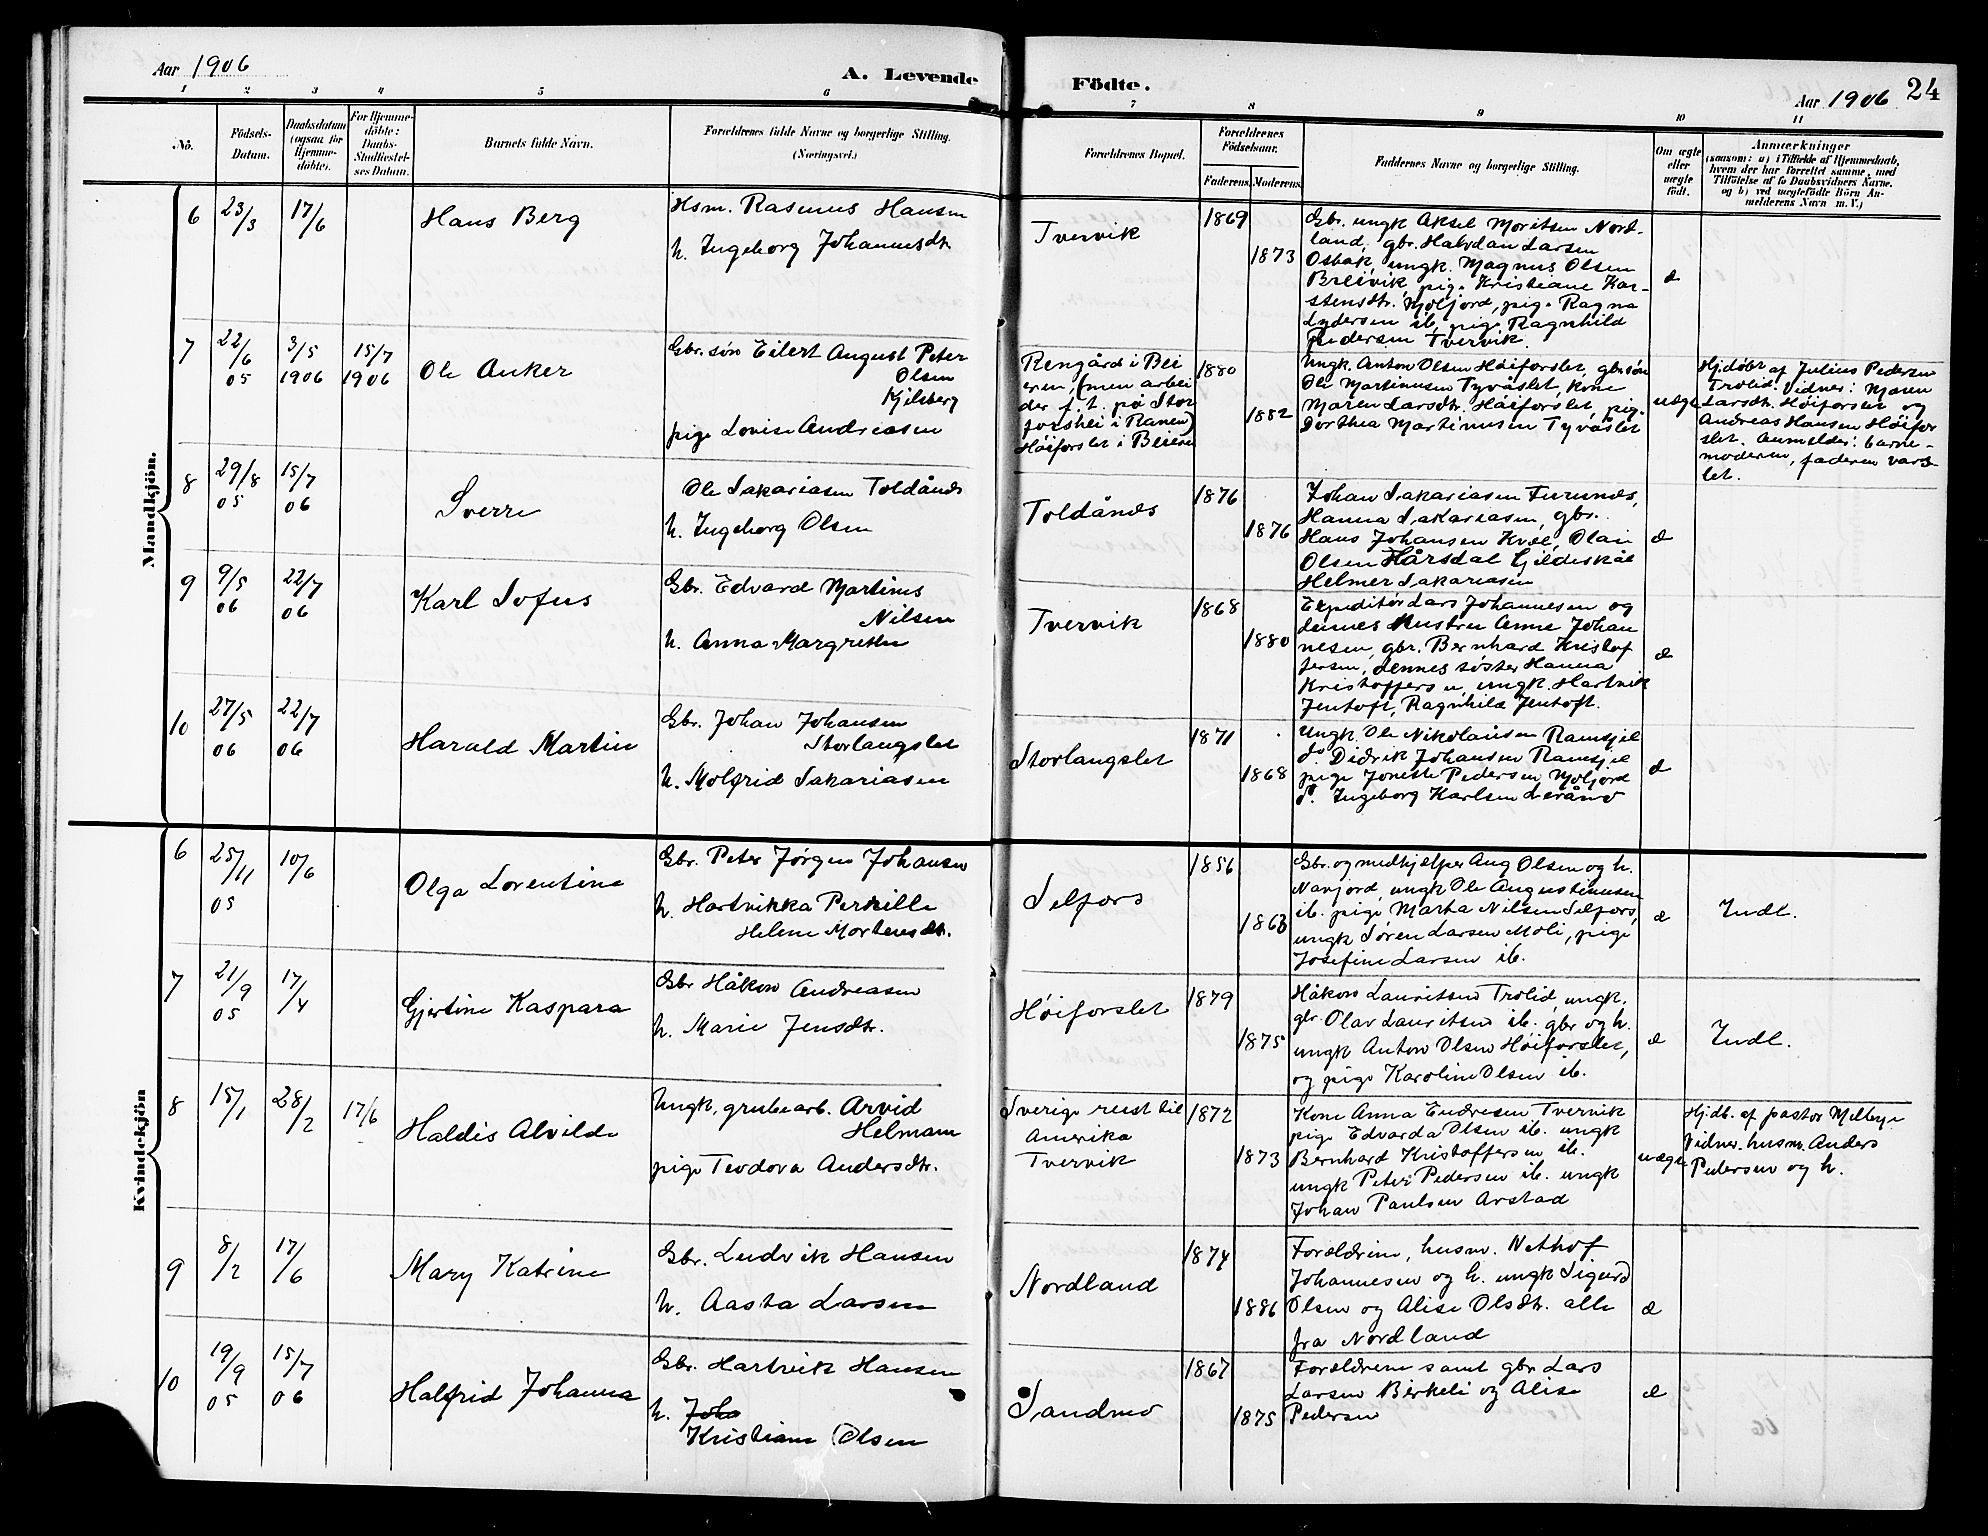 Aar 1906
A. Levende
Födte.
Aar 1906
24
1 2 3 4 5 6 7 8 9 10 11
Nô.
Födsels-
Datum.
Daabsdatum
(ogsaa for
Hjemme-
döbte).
For Hjemme-
döbte:
Daabs-
Stadfæstel-
ses Datum.
Barnets fulde Navn.
Forældrenes fulde Navne og borgerlige Stilling.
(Næringsvei.)
Forældrenes Bopæl.
Forældrenes
Födselsaar.
Faderens.
Moderens.
Faddernes Navne og borgerlige Stilling.
Om ægte
eller
uægte
födt.
Anmærkninger
(saasom: a) i Tilfælde af Hjemmedaab,
hvem der har forrettet samme, med
Tilföielse af to Daabsvidners Navne.
og b) ved uægtefödte Börn An-
melderens Navn m. V.)
Mandkjön.
6
23/3
17/6
Hans Berg
Hsm. Rasmus Hansen
h. Ingeborg Johannesdtr.
Tvervik
1869
1873
Gbr. ungk Aksel Moritsen Nord-
land, gbr. Halvdan Larsen
Osbak, ungk. Magnus Olsen
Breivik, pige Kristiane Kar-
stensdtr. Moljord, pige Ragna
Lydersen ib, pige Ragnhild
Pedersen Tvervik.
æ
7
22/6
05
3/5
1906
15/7
1906
Ole Anker
Gbr.søn Eilert August Peter
Olsen
Kjilsberg
pige Lovise Andreasen
Rengård i Bei
eren, (men arbei
der f. t. på Stor
forshei i Ranen)
Høiforslet i Beiern
1880
1882
Ungk. Anton Olsen Høiforslet, gbr.søn
Ole Martinusen Tyvåslet, kone
Maren Larsdtr. Høiforslet, pige
Dorthea Martinusen Tyvåslet
uægte
Hjdøbt af Julius Pedersen
Trolid. Vidner: Maren
Larsdtr. Høiforslet og
Andreas Hansen Høifor
slet. Anmelder: barne-
moderen, faderen vars-
let.
8
29/8
05
15/7
06
Sverre
Ole Sakariasen Toldånes
h. Ingeborg Olsen
Toldånes
1876
1876
Johan Sakariasen Furunes,
Hanna Sakariasen, gbr.
Hans Johansen Kvæl, Olai
Olsen Hårsdal Gildeskål
Helmer Sakariasen
æ
9
9/5
06
22/7
06
Karl Sofus
Gbr. Edvard Martinus
Nilsen
h. Anna Margrethe
Tvervik
1868
1880
Expeditør Lars Johannesen og
dennes hustru Anne Johan
nesen, gbr. Bernhard Kristof
fersen, dennes søster Hanna
Kristoffersen, ungk. Hartvik
Jentoft, Ragnhild Jentoft.
æ
10
27/5
06
22/7
06
Harald Martin
Gbr. Johan Johansen
Storlangslet
h. Molfrid Sakariasen
Storlangslet
1871
1868
Ungk. Ole Nikolaisen Ramsjel
do. Didrik Johansen Ramsjel
pige Jonette Pedersen Moljord
do. Ingeborg Karlsen Leråmo
æ
Kvindekjön
6
25/11
05
10/6
Olga Lorentine
Gbr. Peter Jørgen Johansen
h. Hartvikka Pernille
Helene Mortensdtr.
Selfors
1856
1863
Gbr. og medhjelper Aug Olsen og h.
Navjord, ungk Ole Augustinusen
ib. pige Marta Nilsen Selfors,
ungk Søren Larsen Moli, pige
Josefine Larsen ib.
æ
Indl.
7
21/9
05
17/4
Gjertine Kaspara
Gbr Håkon Andreasen
h. Marie Jensdtr.
Høiforslet
1879
1875
Håkon Lauritsen Trolid, ungk.
gbr. Olav Lauritsen ib. gbr og h.
ungk Anton Olsen Høiforslet,
og pige Karoline Olsen ib.
æ
Indl.
8
15/1
28/2
17/6
Haldis Alvilde
Ungk, grubearb. Arvid
Helmann
pige Teodora Andersdtr.
Sverige reist til
Amerika
Tvervik
1872
1873
Kone Anna Endresen Tvervik
pige Edvarda Olsen ib. ungk
Bernhard Kristoffersen ib.
ungk Peter Pedersen ib. ungk
Johan Paulsen Arstad
uægte
Hjdb. af pastor Melbye
Vidner. husm. Anders
Pedersen og h.
9
8/2
17/6
Mary Katrine
Gbr. Ludvik Hansen
h. Aasta Larsen
Nordland
1874
1886
Forældrene, husm. Nethof
Johannesen og h. ungk Sigurd
Olsen og Alise Olsdtr. alle
fra Nordland
æ
10
19/9
05
15/7
06
Halfrid Johanna
Gbr. Hartvik Hansen
h. Joha
Kristiane Olsen
Sandmo
1867
1875
Forældrene samt gbr Lars
Larsen Birkeli og Alise
Pedersen
æ